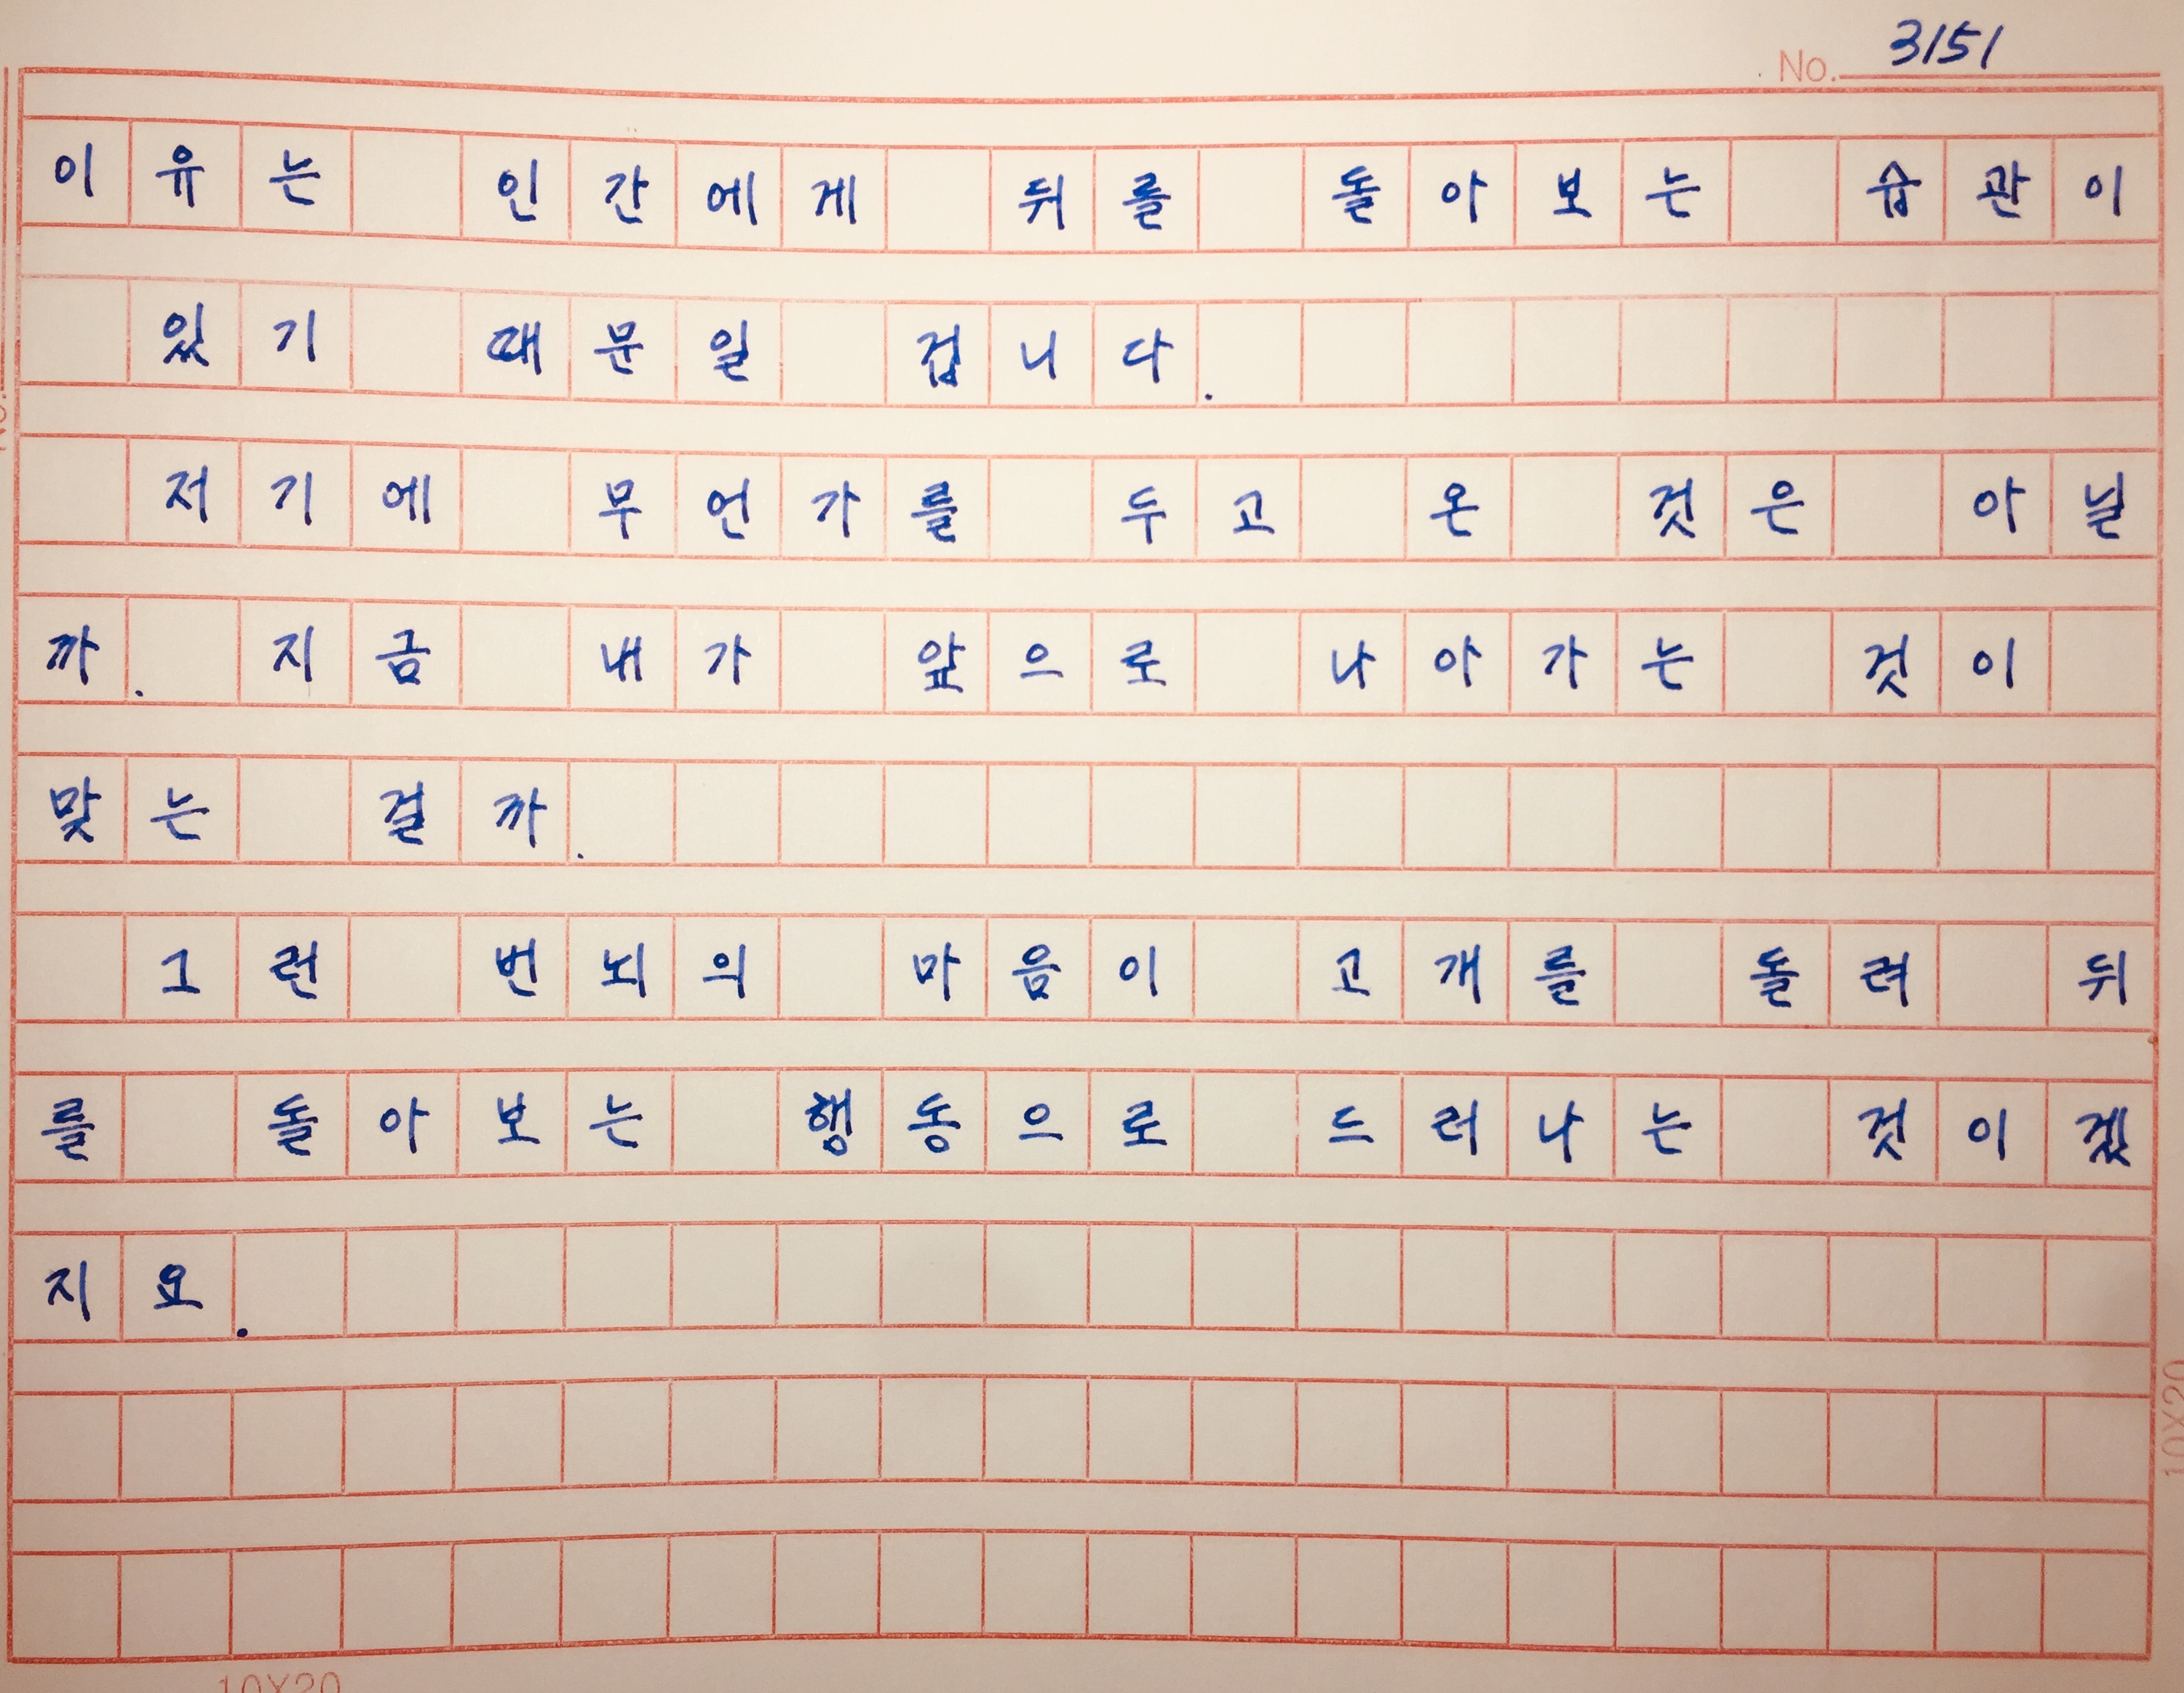 No. 3151
이유는 인간에게 뒤를 돌아보는 습관이
있기 때문일 겁니다.
저기에 무언가를 두고 온 것은 아닐
까. 지금 내가 앞으로 나아가는 것이
맞는 걸까.
그런 번뇌의 마음이 고개를 돌려 뒤
를 돌아보는 행동으로 드러나는 것이겠
지요.
10X20
10X20